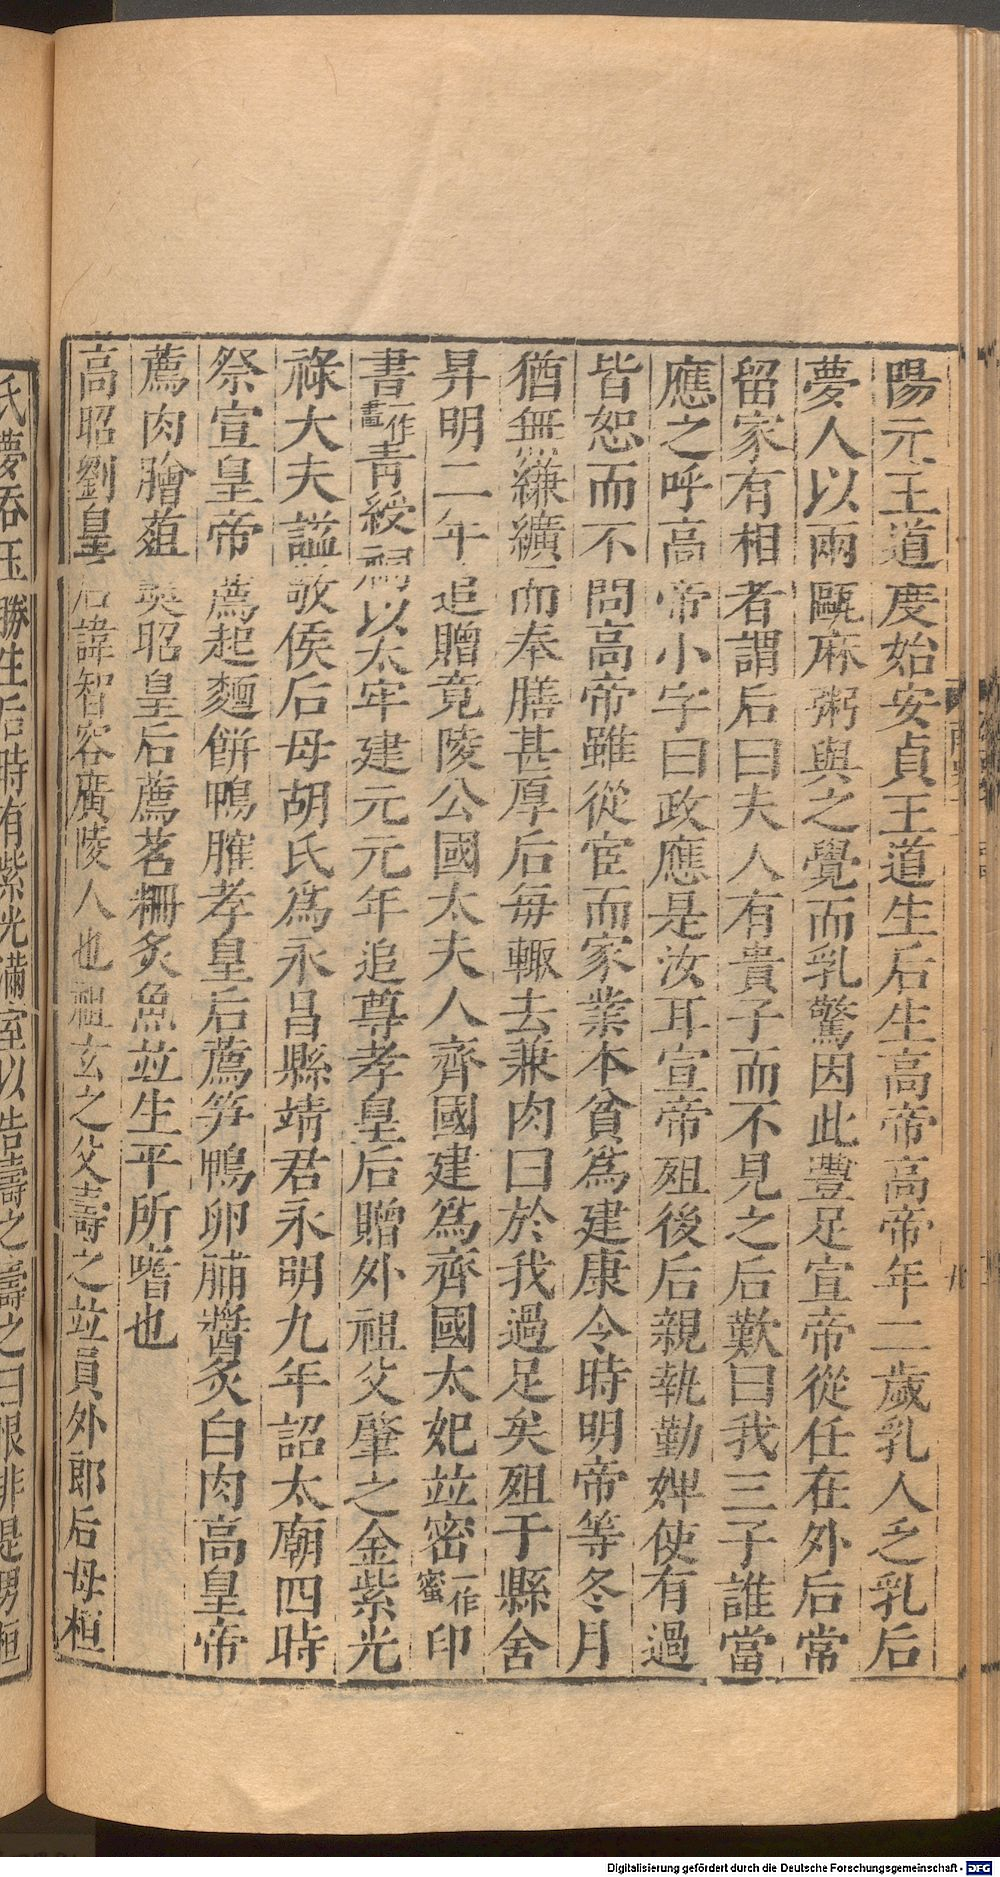 陽元王道度始安貞王道生后生高帝高帝年二歲乳人乏乳后
夢人以兩甌麻粥與之覺而乳驚因此豐足宣帝從任在外后常
留家有相者謂后曰夫人有貴子而不見之后歎曰我三子誰當
應之呼高帝小字曰政應是汝耳宣帝殂後后親執勤婢使有過
皆恕而不問高帝雖從宦而家業本貧為建康令時明帝等冬月
猶無縑纊而奉膳甚厚后每輙去兼肉曰於我過足矣殂于縣舍
昇明二年追贈竟陵公國太夫人齊國建為齊國太妃竝密一作蜜印
書一作畫青綬祠以太牢建元元年追尊孝皇后贈外祖父肇之金紫光
祿大夫謚敬侯后母胡氏為永昌縣靖君永明九年詔太廟四時
祭宣皇帝薦起麵餅鴨臛孝皇后薦笋鴨卵脯醬炙白肉高皇帝
薦肉膾葅羹昭皇后薦茗粣炙魚竝生平所嗜也
高昭劉皇后諱智容廣陵人也祖玄之父壽之竝員外郎后母桓
氏夢吞玉勝生后時有紫光滿室以告壽之壽之曰恨非是男桓
Digitalisierung gefördert durch die Deutsche Forschungsgemeinschaft - DFG